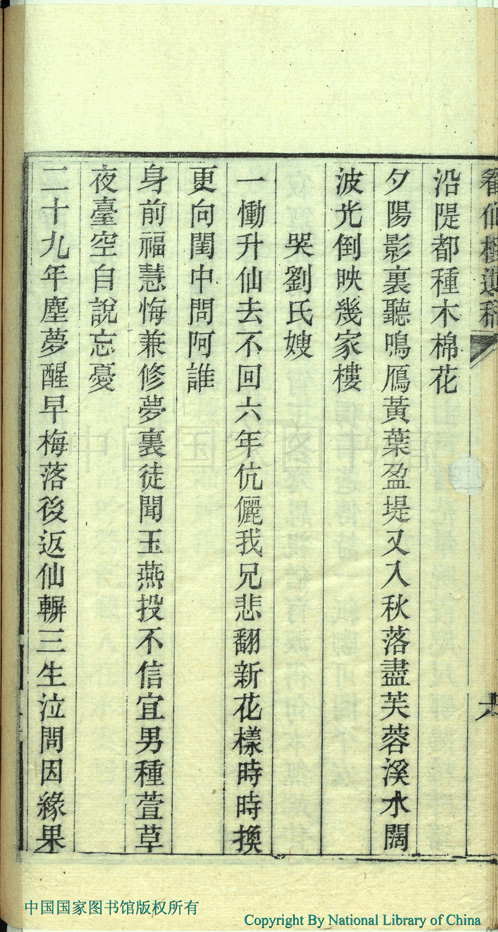 看仙樓遺稿
六
沿隄都種木棉花
夕陽影裏聽鳴鴈黃葉盈堤又入秋落盡芙蓉溪水闊
波光倒映幾家樓
哭劉氏嫂
一慟升仙去不回六年伉儷我兄悲翻新花樣時時換
更向閨中問阿誰
身前福慧悔兼修夢裏徒聞玉燕投不信宜男種萱草
夜臺空自說忘憂
二十九年塵夢醒早梅落後返仙軿三生泣問因緣果
中国国家图书馆版权所有
Copyright By National Library of China